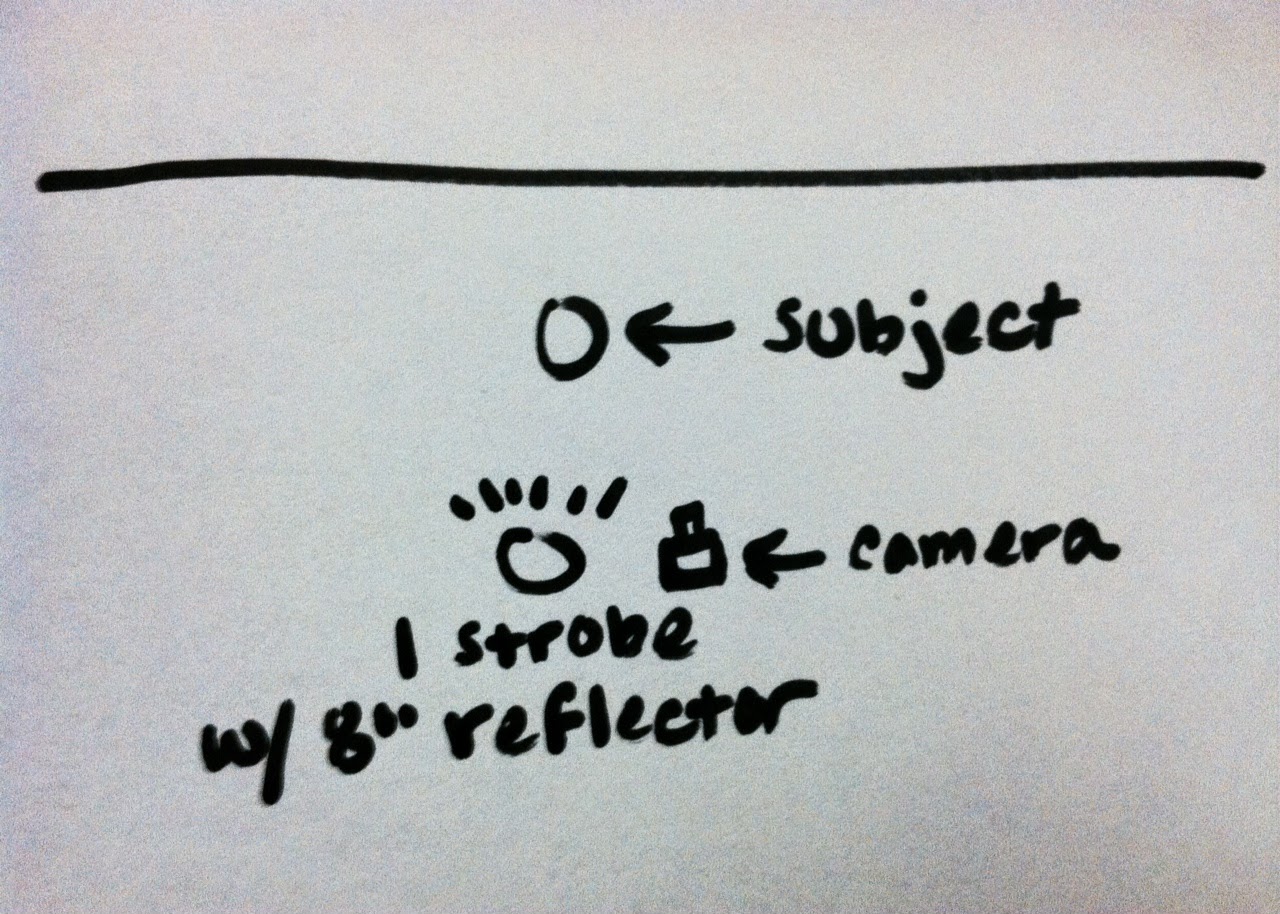 subject
camera
1 strobe
w/ 8" reflector